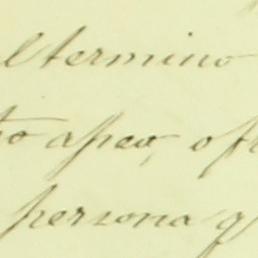 el termino
to apeo, o f
persona q